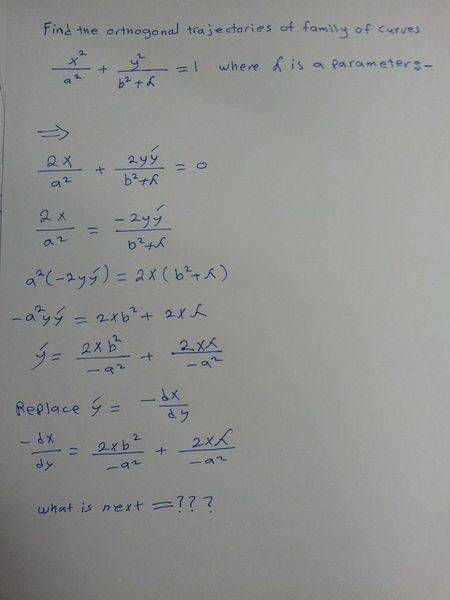 Find the orthogonal trajectories of family of curves
x²/a² + y²/(b²+λ) = 1 where λ is a parameter:-
⇒
2x/a² + 2yý/(b²+λ) = 0
2x/a² = -2yý/(b²+λ)
a²(-2yý) = 2x(b²+λ)
-a²yý = 2xb² + 2xλ
ý = 2xb²/-a² + 2xλ/-a²
Replace ý = -dx/dy
-dx/dy = 2xb²/-a² + 2xλ/-a²
what is next =???